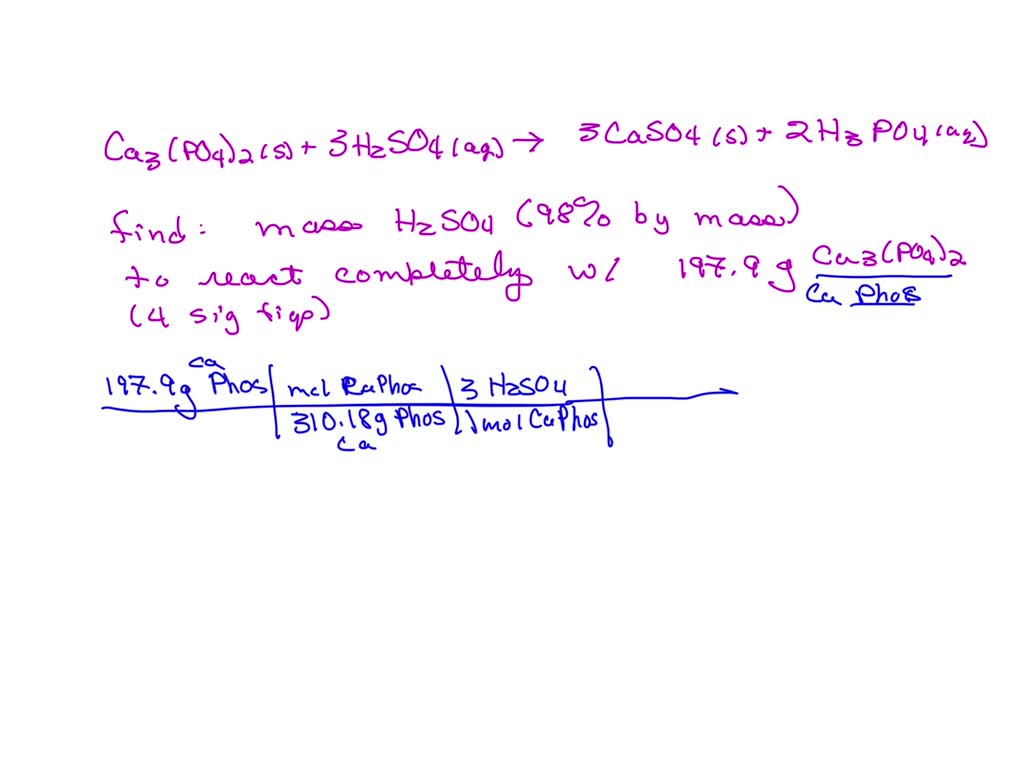 Ca3(PO4)2(s) + 3H2SO4(aq) → 3CaSO4(s) + 2H3PO4(aq)
find: mass H2SO4 (98% by mass)
to react completely w/ 197.9 g Ca3(PO4)2
Ca Phos
(4 sig figs)
197.9g Ca Phos | mol CaPhos | 3 H2SO4
310.18g Ca Phos | 1 mol CaPhos